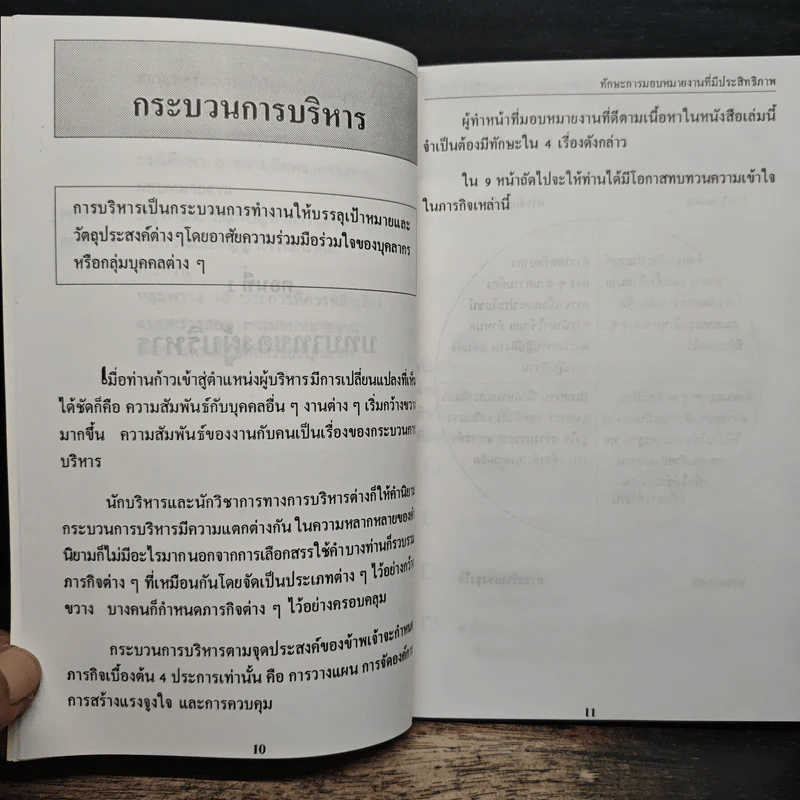 กระบวนการบริหาร
การบริหารเป็นกระบวนการทำงานให้บรรลุเป้าหมายและ
วัตถุประสงค์ต่าง ๆ โดยอาศัยความร่วมมือร่วมใจของบุคลากร
หรือกลุ่มบุคคลต่าง ๆ
เมื่อท่านก้าวเข้าสู่ตำแหน่งผู้บริหาร มีการเปลี่ยนแปลงที่เห็น
ได้ชัดก็คือ ความสัมพันธ์กับบุคคลอื่น ๆ งานต่าง ๆ เริ่มกว้างขวาง
มากขึ้น ความสัมพันธ์ของงานกับคนเป็นเรื่องของกระบวนการ
บริหาร
นักบริหารและนักวิชาการทางการบริหารต่างก็ให้คำนิยาม
กระบวนการบริหารมีความแตกต่างกัน ในความหลากหลายของคำ
นิยามก็ไม่มีอะไรมากนอกจากการเลือกสรรใช้คำบางท่านก็รวบรวม
ภารกิจต่าง ๆ ที่เหมือนกันโดยจัดเป็นประเภทต่าง ๆ ไว้อย่างกว้าง
ขวาง บางคนก็กำหนดภารกิจต่าง ๆ ไว้อย่างครอบคลุม
กระบวนการบริหารตามจุดประสงค์ของข้าพเจ้าจะกำหนด
ภารกิจเบื้องต้น 4 ประการเท่านั้น คือ การวางแผน การจัดองค์การ
การสร้างแรงจูงใจ และการควบคุม
10
ทักษะการมอบหมายงานที่มีประสิทธิภาพ
ผู้ทำหน้าที่มอบหมายงานที่ดีตามเนื้อหาในหนังสือเล่มนี้
จำเป็นต้องมีทักษะใน 4 เรื่องดังกล่าว
ใน 9 หน้าถัดไปจะให้ท่านได้มีโอกาสทบทวนความเข้าใจ
ในภารกิจเหล่านี้
11